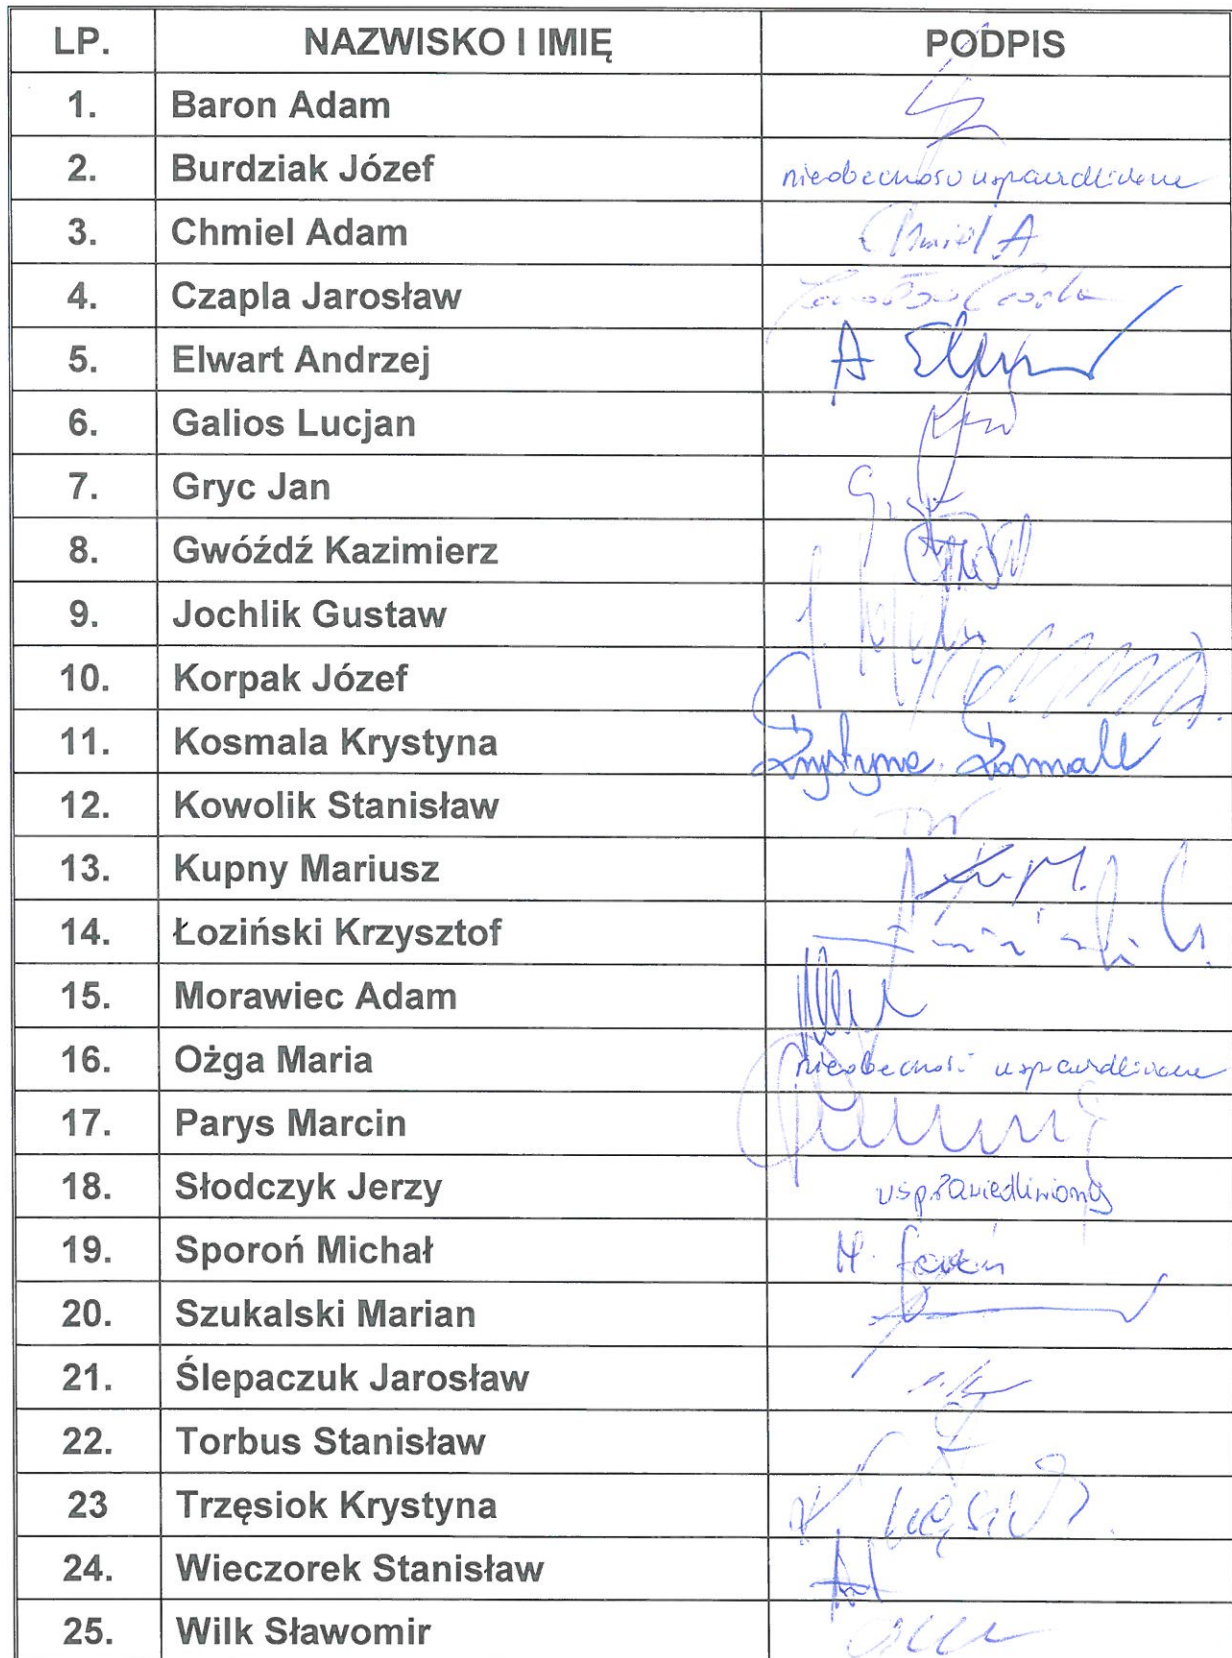 LP. NAZWISKO I IMIĘ PODPIS
1. Baron Adam
2. Burdziak Józef nieobecność usprawiedliwiona
3. Chmiel Adam Chmiel A
4. Czapla Jarosław
5. Elwart Andrzej
6. Galios Lucjan
7. Gryc Jan
8. Gwóźdź Kazimierz
9. Jochlik Gustaw
10. Korpak Józef
11. Kosmala Krystyna Krystyna Kosmala
12. Kowolik Stanisław
13. Kupny Mariusz
14. Łoziński Krzysztof
15. Morawiec Adam
16. Ożga Maria nieobecność usprawiedliwiona
17. Parys Marcin
18. Słodczyk Jerzy usprawiedliwiony
19. Sporoń Michał
20. Szukalski Marian
21. Ślepaczuk Jarosław
22. Torbus Stanisław
23 Trzęsiok Krystyna
24. Wieczorek Stanisław
25. Wilk Sławomir